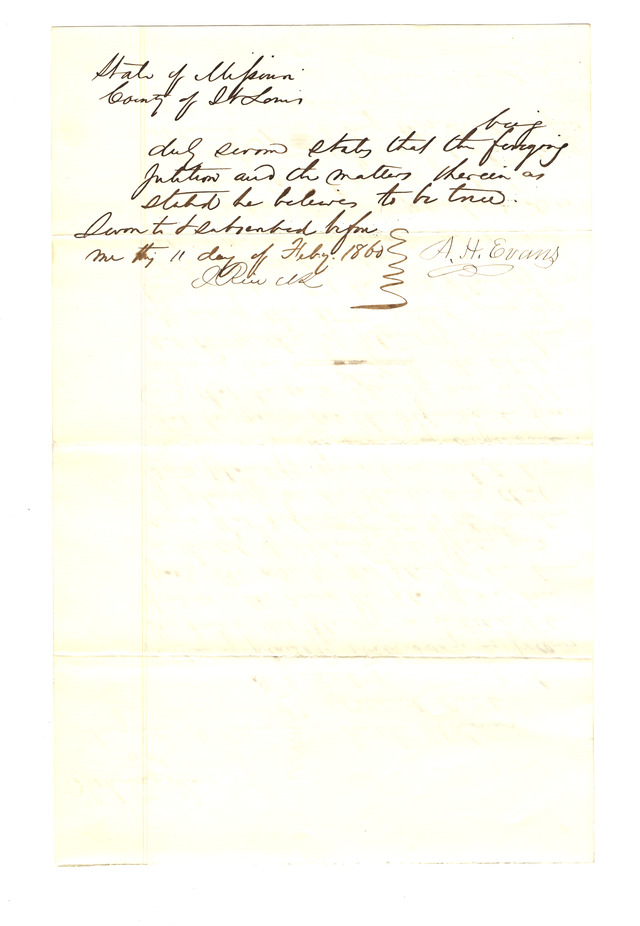 State of Missouri
County of St Louis
being
duly sworn states that the foregoing
petition and the matters therein as
stated he believes to be true.
Sworn to & subscribed before
me this 11 day of Feby. 1860
A. H. Evans